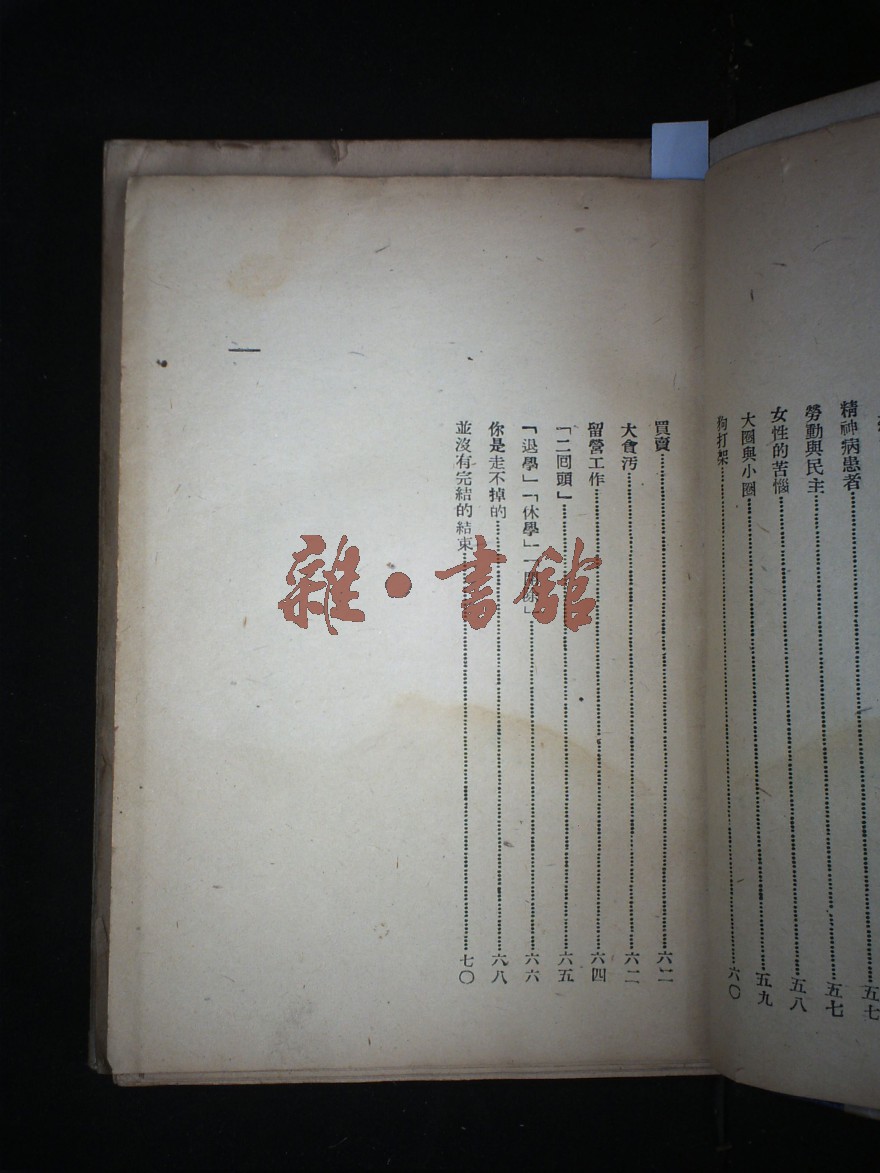 精神病患者⋯⋯五七
勞動與民主⋯⋯五七
女性的苦惱⋯⋯五八
大圈與小圈⋯⋯五九
狗打架⋯⋯六〇
買賣⋯⋯六二
大貪污⋯⋯六二
留營工作⋯⋯六四
「二回頭」⋯⋯六五
「退學」「休學」「開除」⋯⋯六六
你是走不掉的⋯⋯六八
並沒有完結的結束⋯⋯七〇
一
雜·書館